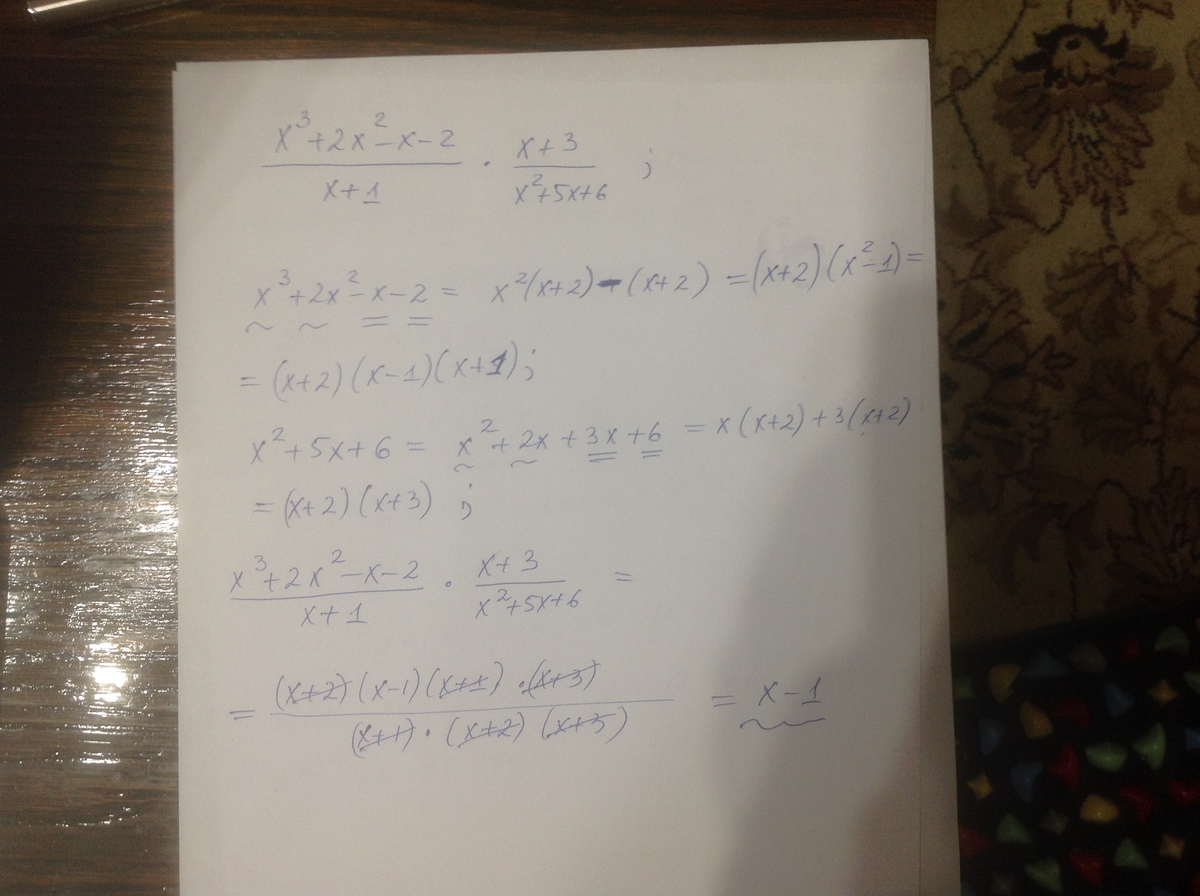 x³+2x²-x-2 / x+1 · x+3 / x²+5x+6 ;
x³+2x²-x-2 = x²(x+2)-(x+2) =(x+2)(x²-1)=
= (x+2)(x-1)(x+1);
x²+5x+6 = x²+2x+3x+6 = x(x+2)+3(x+2)
= (x+2)(x+3) ;
x³+2x²-x-2 / x+1 · x+3 / x²+5x+6 =
= (x+2)(x-1)(x+1)·(x+3) / (x+1)·(x+2)(x+3) = x-1